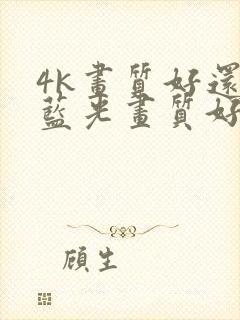 4K畫質好還
藍光畫質好
顧生